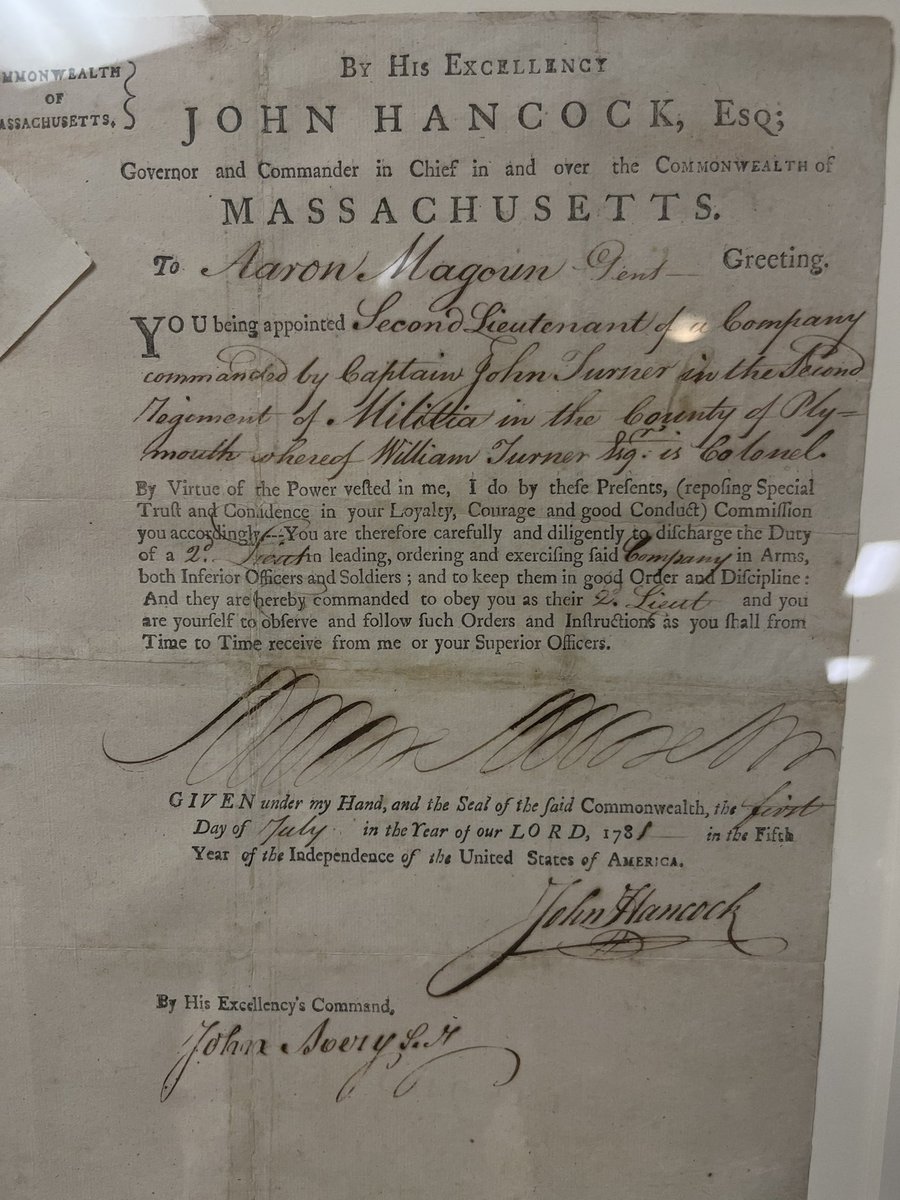 MMONWEALTH
OF
ASSACHUSETTS.
By His Excellency
JOHN HANCOCK, Esq;
Governor and Commander in Chief in and over the COMMONWEALTH of
MASSACHUSETTS.
To Aaron Magoun Gent Greeting.
YOU being appointed Second Lieutenant of a Company
commanded by Captain John Turner in the Second
Regiment of Militia in the County of Ply=
mouth whereof William Turner Esqr. is Colonel.
By Virtue of the Power veſted in me, I do by theſe Preſents, (repoſing Special
Truſt and Confidence in your Loyalty, Courage and good Conduct) Commiſſion
you accordingly:---You are therefore carefully and diligently to diſcharge the Duty
of a 2d. Lieut in leading, ordering and exerciſing ſaid Company in Arms,
both Inferior Officers and Soldiers; and to keep them in good Order and Diſcipline:
And they are hereby commanded to obey you as their 2d. Lieut and you
are yourſelf to obſerve and follow ſuch Orders and Inſtructions as you ſhall from
Time to Time receive from me or your Superior Officers.
GIVEN under my Hand, and the Seal of the ſaid Commonwealth, the first
Day of July in the Year of our LORD, 1781 in the Fifth
Year of the Independence of the United States of AMERICA.
John Hancock
By His Excellency's Command,
John Avery